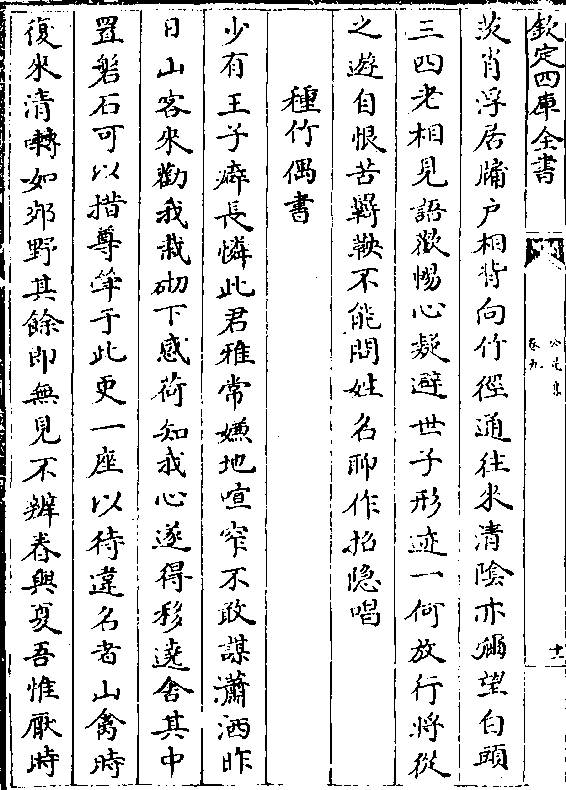 欽定四庫全書
公是集
卷九
十一
茨肖浮居牖户相背向竹徑通往来清陰亦彌望白頭
三四老相見語歡惕心疑避世子形迹一何放行將從
之遊自恨苦羈鞅不能問姓名聊作招隐唱
種竹偶書
少有王子癖長憐此君雅常嫌地喧窄不敢謀瀟洒昨
日山客來勸我栽砌下感荷知我心遂得移遶舍其中
置磐石可以措尊斚于此更一座以待違名者山禽時
復來清囀如郊野其餘即無見不辨春與夏吾惟厭時